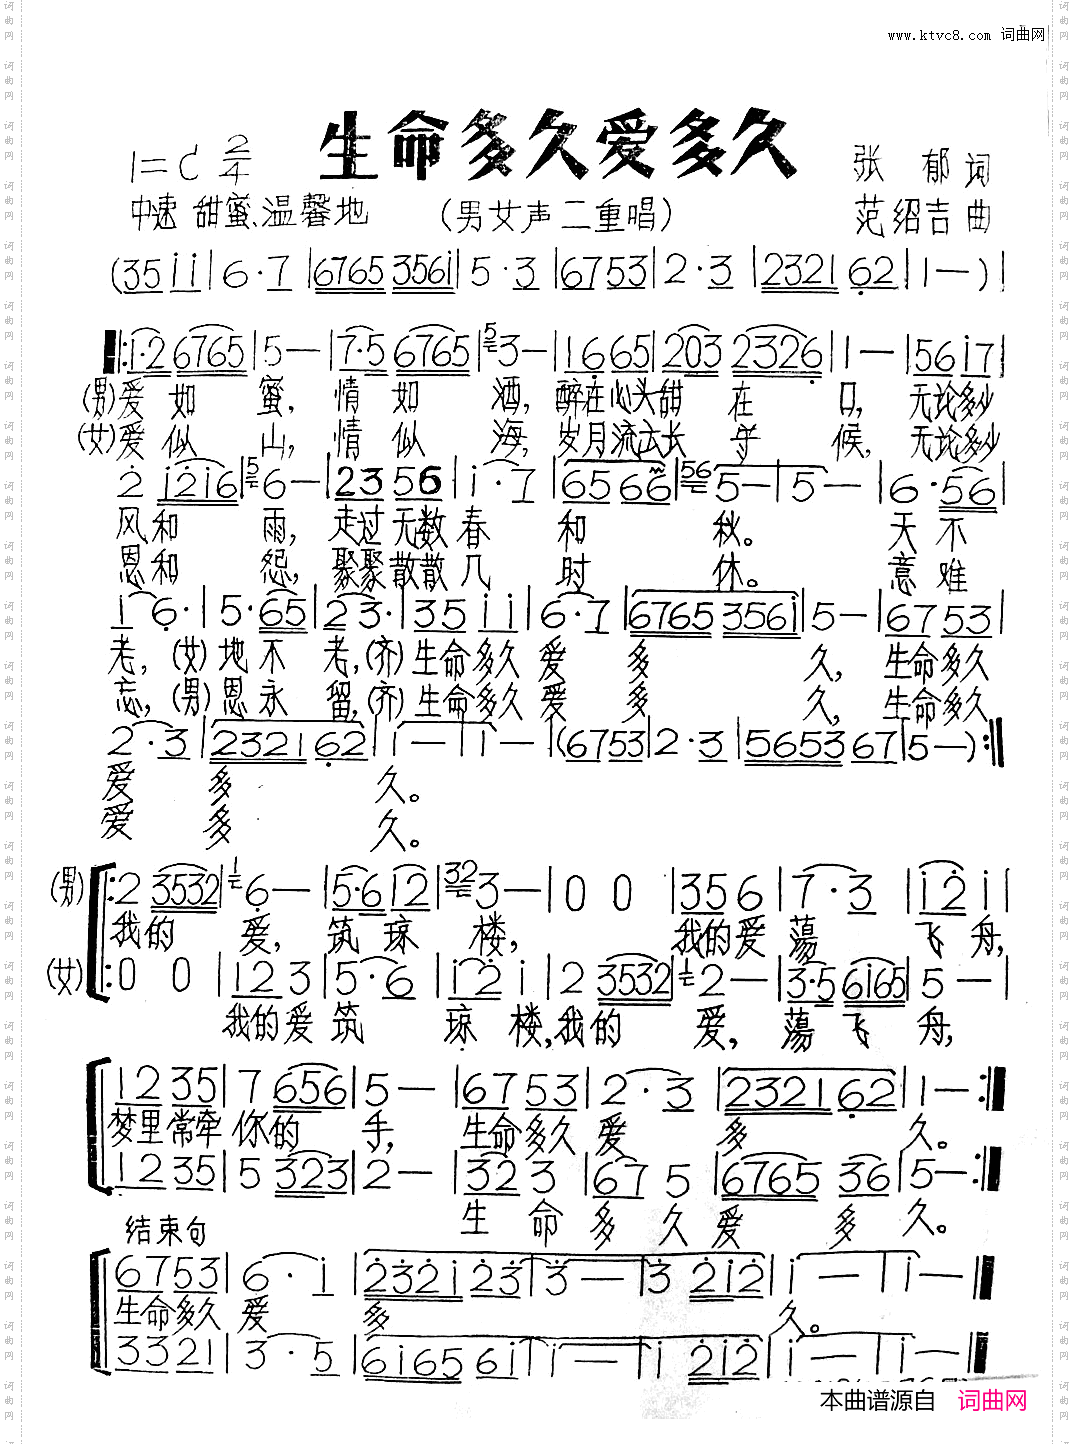 www.ktvc8.com 词曲网
生命多久爱多久
1=C 2/4
张郁词
中速 甜蜜、温馨地
(男女声二重唱)
范绍吉曲
(35ii|6·7|6765 356i|5·3|6753|2·3|2321 62|1—)|
|:i·2 6765|5—|7·5 6765|5 3—|1665|203 2326|1—|56i7|
(男)爱如蜜,情如酒,醉在心头甜在口,无论多少
(女)爱似山,情似海,岁月流云长守候,无论多少
2 i2i6|5 6—|23 56|i·7|65 66|56 5—|5—|6·56|
风和雨,走过无数春和秋。天不
恩和怨,聚聚散散几时休。意难
i6·|5·65|23·|35ii|6·7|6765 356i|5—|6753|
老,(女)地不老,(齐)生命多久爱多久,生命多久
忘,(男)恩永留,(齐)生命多久爱多久,生命多久
2·3|2321 62|1—|1—|(6753|2·3|5653 67|5—):|
爱多久。
爱多久。
(男)|:2 3532|1 6—|5·6 12|32 3—|0 0|35 6|7·3|i2 i|
我的爱,筑琼楼,我的爱荡飞舟,
(女)|:0 0|12 3|5·6|i·2 i|2 3532|1 2—|3·5 6i65|5—|
我的爱筑琼楼,我的爱,荡飞舟,
12 35|7 656|5—|67 53|2·3|2321 62|1—:|
梦里常牵你的手,生命多久爱多久。
12 35|5 323|2—|32 3|67 5|6765 36|5—:|
生命多久爱多久。
结束句
6753|6·i|232i 23|3—|3 2i2|i—|i—|
生命多久爱多久。
3321|3·5|6i65 6i|i—|i 2i2|i—|i—|
本曲谱源自 词曲网